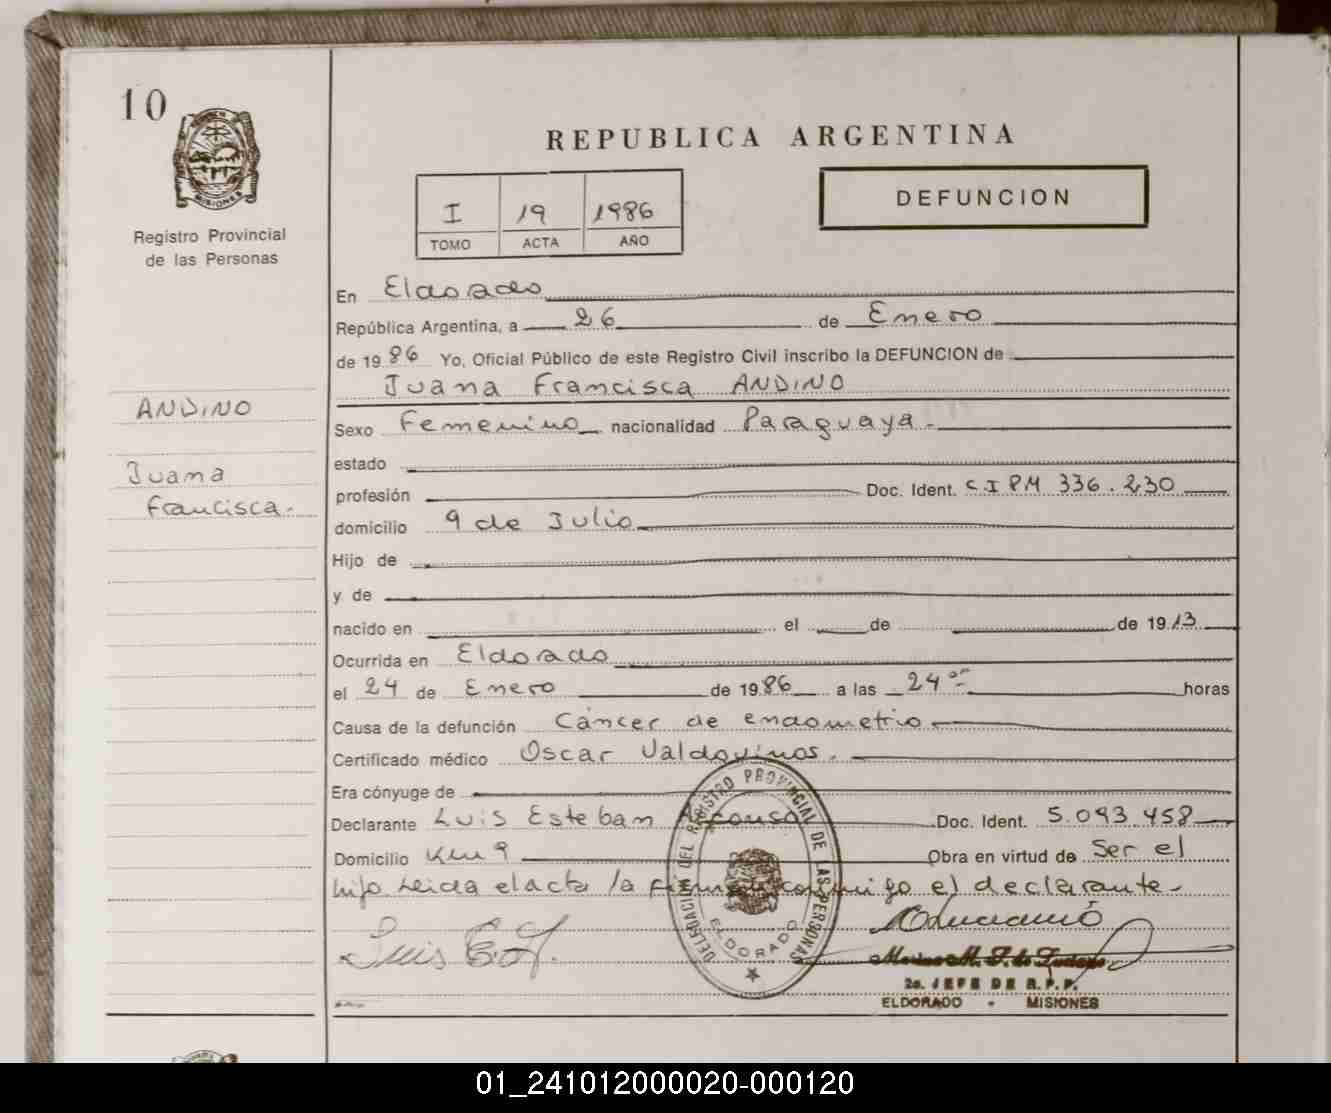 10
MISIONES
Registro Provincial
de las Personas
ANDINO
Juana
Francisca.
REPUBLICA ARGENTINA
I 19 1986
TOMO ACTA AÑO
DEFUNCION
En Eldorado
República Argentina, a 26 de Enero
de 1986 Yo, Oficial Público de este Registro Civil inscribo la DEFUNCION de
Juana Francisca ANDINO
Sexo Femenino nacionalidad Paraguaya.
estado
profesión Doc. Ident. C.I PM 336.230
domicilio 9 de Julio
Hijo de
y de
nacido en el de de 1913
Ocurrida en Eldorado
el 24 de Enero de 1986 a las 24 horas
Causa de la defunción Cáncer de endometrio
Certificado médico Oscar Valdovinos.
Era cónyuge de
Declarante Luis Esteban Doc. Ident. 5.093.458
Domicilio Km 9 Obra en virtud de Ser el
hijo Leida el acta la firma conmigo el declarante
DELEGACION DEL REGISTRO PROVINCIAL DE LAS PERSONAS
ELDORADO
Luis E.
2a. JEFE DE R.P.P.
ELDORADO - MISIONES
01_241012000020-000120